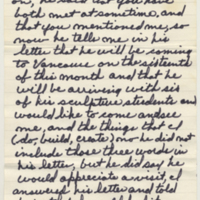 on, he said that you have
both met at sometime, and
that you mentioned me, so
now he tells me in his
letter that he will be coming
to Vancouver on the sixteenth
of this month and that he
will be arriving with six
of his sculpture students and
would like to come and see
me, and the things that I
(do, build, create) no he did not
include those three words in
his letter, but he did say he
would appreciate a visit, I
answered his letter and told